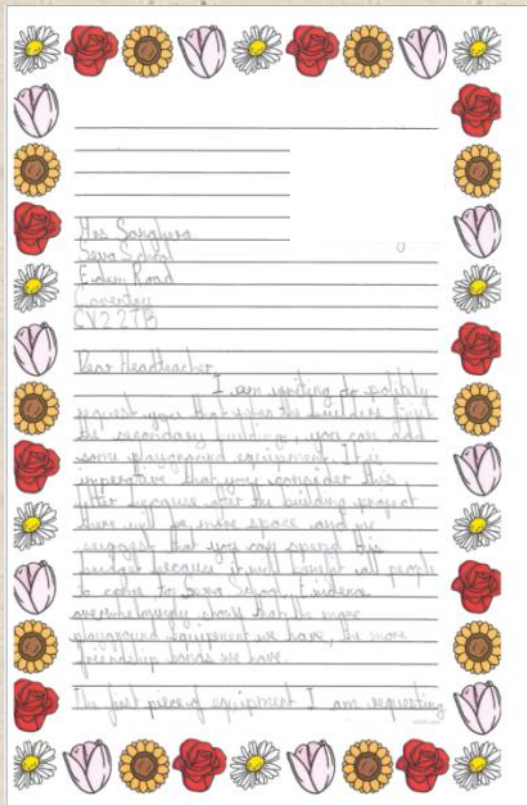 Mrs Sanghera
Seva School
Eden Road
Coventry
CV2 2TB
Dear Headteacher,
I am writing to politely
request you that when the builders finish
the secondary building, you can add
some playground equipment. It is
imperative that you consider this
letter because after the building project
there will be more space and we
suggest that you can spend this
budget because it will benefit all people
to come to Seva School. Evidence
overwhelmingly shows that the more
playground equipment we have, the more
friendship bonds we have.
The first piece of equipment I am requesting